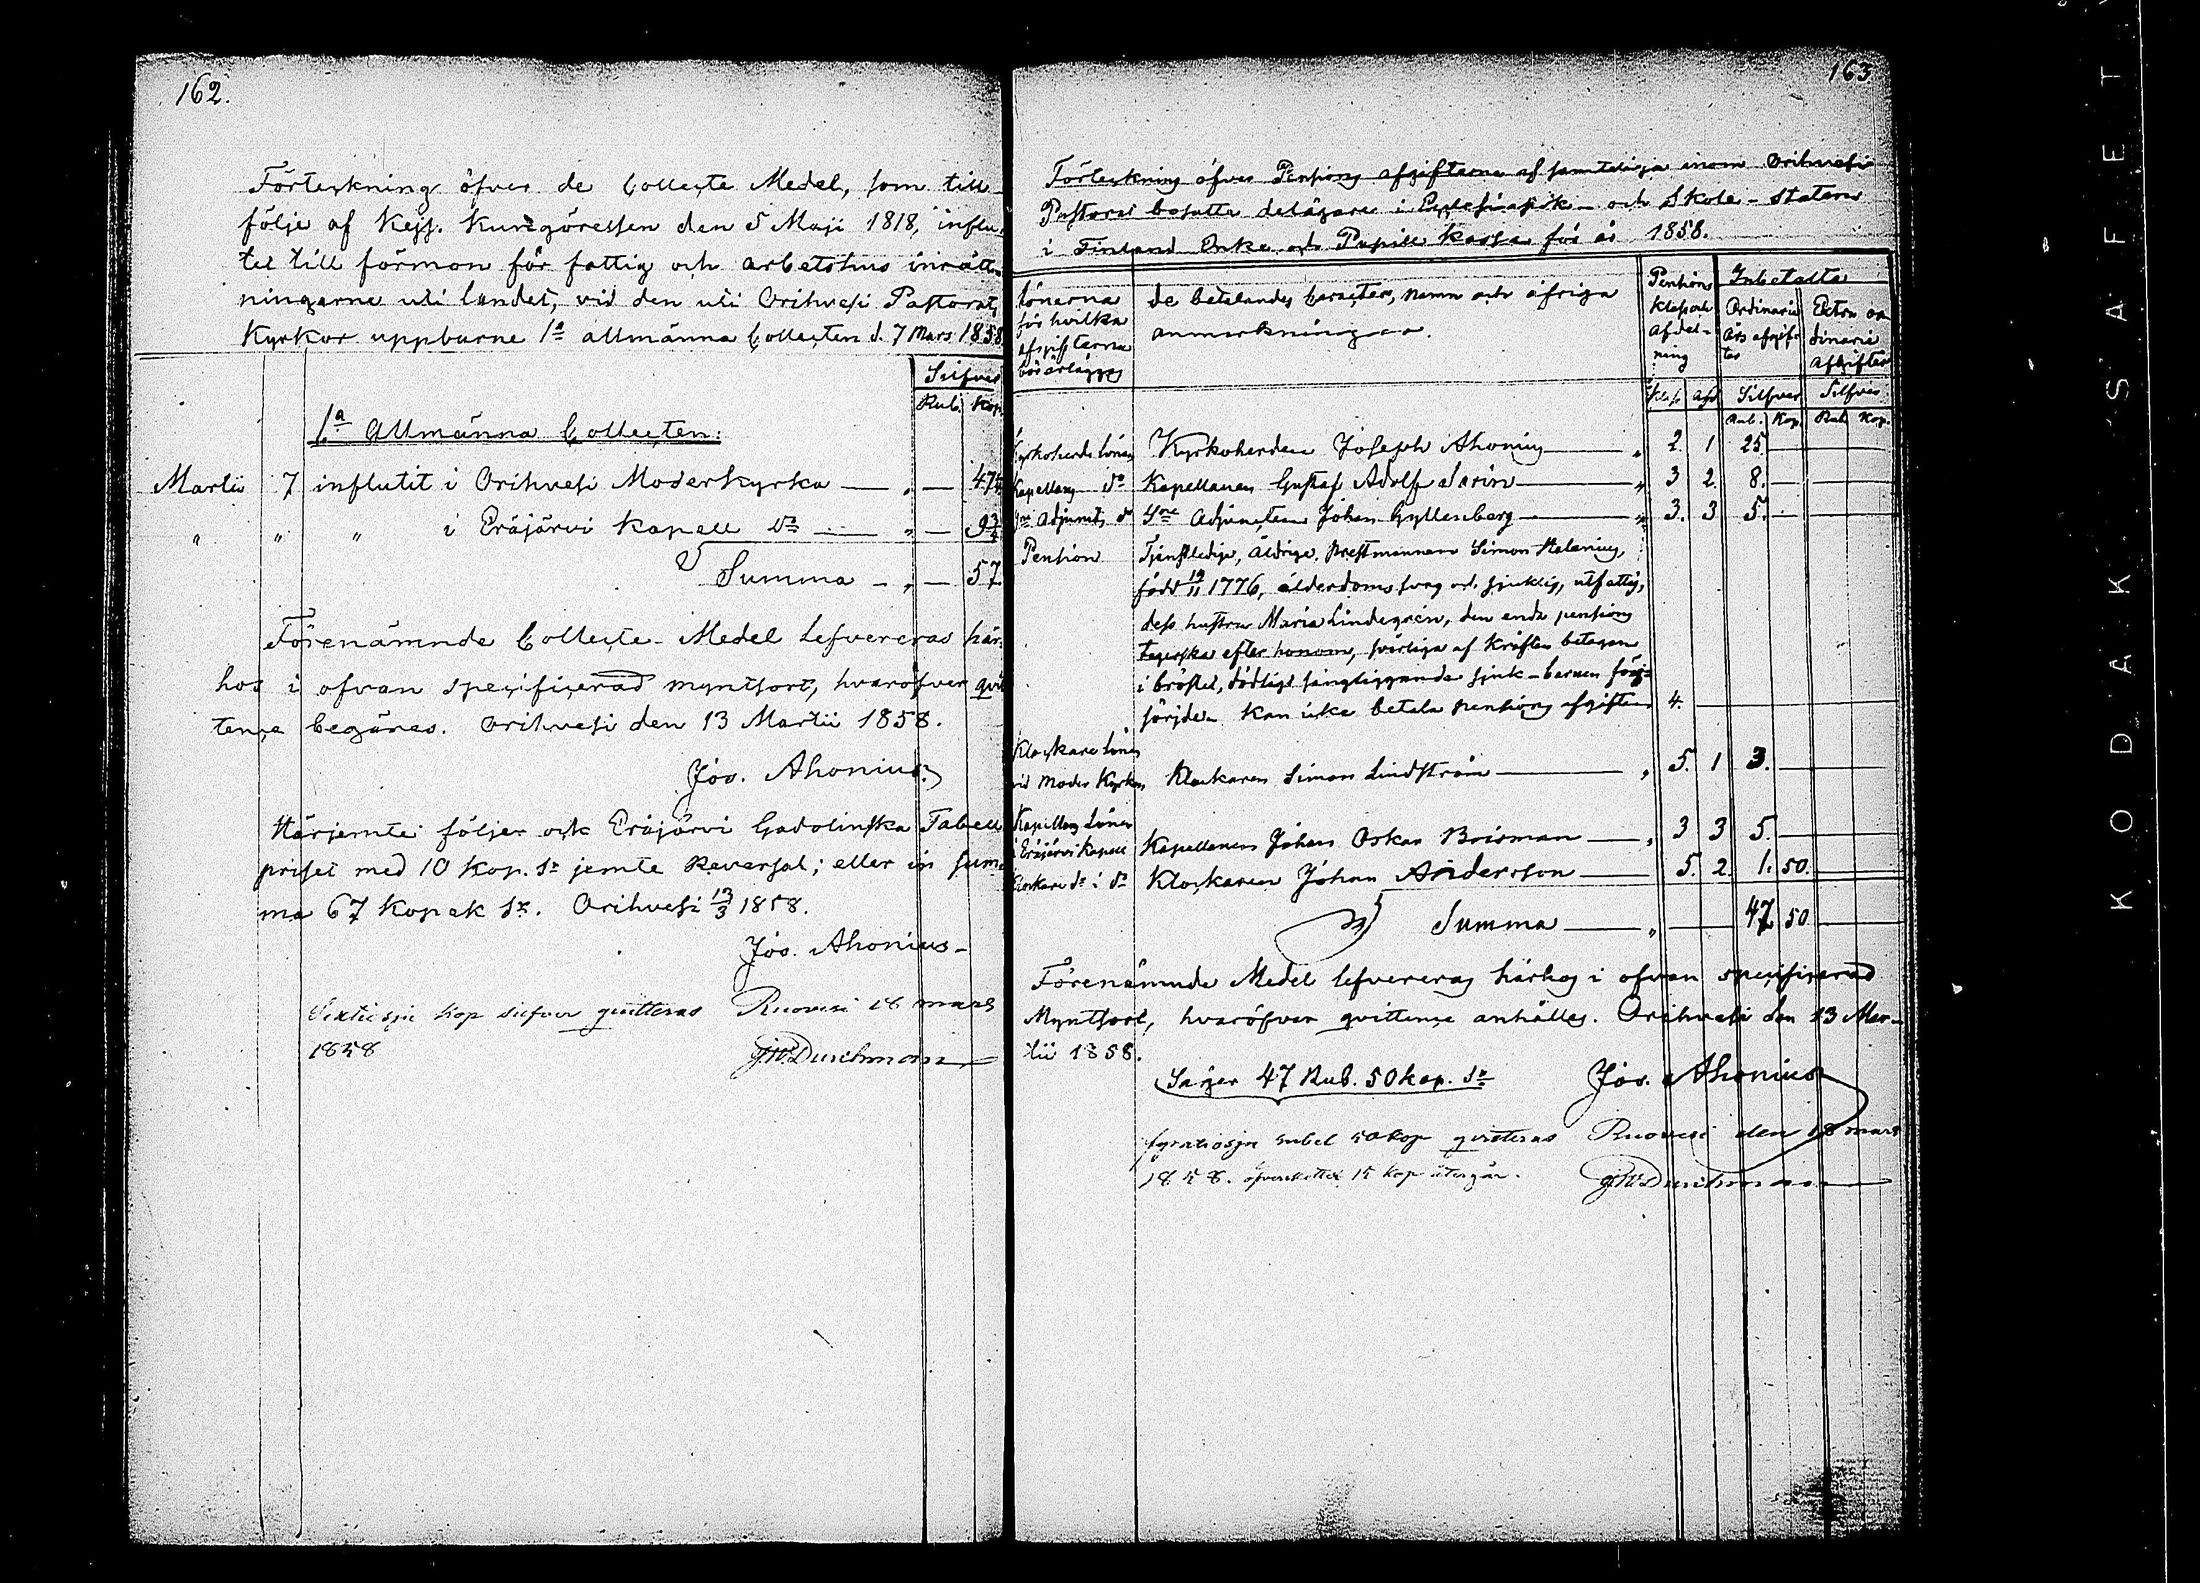 162.
Förteckning öfver de Collecte Medel, som till-
följe af Kejs. Kungörelsen den 5 Maji 1818, influ-
tit till förmon för fattig och arbetshus inrätt-
ningarne uti landet, vid den uti Orihvesi Pastorat,
Kyrkor uppburne 1a allmänna Collecten d. 7 Mars 1858
Silfver
Rub. Kop.
1a Allmänna Collecten:
Martii 7 influtit i Orihvesi Moderkyrka — „ — 47¼
„ „ „ i Eräjärvi Kapell do — „ — 9¾
Summa — „ — 57.
Förenämnde Collecte-Medel lefvereras här-
hos i ofvan specificerad myntsort, hvaröfver qvit-
tence begäres. Orihvesi den 13 Martii 1858.
Jos. Ahonius
Härjemte följer ock Eräjärvi Gadolinska Tabell
priset med 10 Kop. Sr jemte Reversal; eller in sum-
ma 67 Kopek Sr. Orihvesi 13/3 1858.
Jos. Ahonius
Sextiosju kop silfver qvitteras Ruovesi 18 mars
1858
163
Förteckning öfver Pensions afgifterne af samtelige inom Orihvesi
Pastorat bosatte delägare i Ecclesiastik- och Skole-Staters
i Finland Enke och Pupill Kassa för år 1858.
Lönerna
för hvilka
afgifterna
bör erläggas
De betalandes Caracter, namn och öfriga
anmerkningar.
Pensions
Klass och
afdel-
ning
Inbetalta
Ordinarie
års afgif-
ter
Extra or-
dinarie
afgifter
Klass Afd Silfver Silfver
Rub. Kop. Rub. Kop.
Kyrkoherde Lönen Kyrkoherden Joseph Ahonius — „ 2. 1 25.
Kapellans do Kapellanen Gustaf Adolf Sarin — „ 3 2. 8.
Adjuncts do Adjuncten Johan Gyllenberg — „ 3. 3 5.
Pension Tjenstledige, åldrige Prestmannen Simon Helenius,
född 19/11 1776, ålderdomssvag och sjuklig, utfattig,
dess hustru Maria Lindegrén, den enda pensions
tagerska efter honom, svårliga af kräfta betagen
i bröstet, dödligt sängliggande sjuk - barnen förs-
sörjde. Kan icke betala pensions afgiften 4.
Klockare Lönen
vid Moder Kyrkan Klockaren Simon Lindström — „ 5. 1 3.
Kapellans Lönen
i Eräjärvi Kapell Kapellanen Johan Oskar Boisman — „ 3 3 5.
Klockare do i do Klockaren Johan Andersson — 5. 2. 1. 50.
Summa — „ — 47 50
Förenämnde Medel lefvereras härhos i ofvan specificerad
Myntsort, hvaröfver qvittence anhålles. Orihvesi den 13 Mar-
tii 1858.
Säger 47 Rub. 50 kop. Sr Jos. Ahonius
Fyratiosju rubel 50 kop qvitteras Ruovesi den 18 mars
1858. öfverskottet 15 kop återgår.
KODAK SAFETY